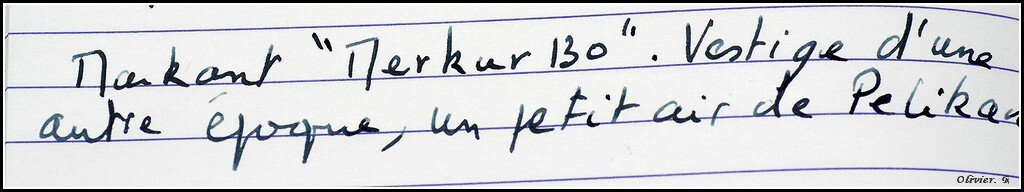 Markant "Merkur 130". Vestige d'une
autre époque, un petit air de Pelikan
Olivier. R